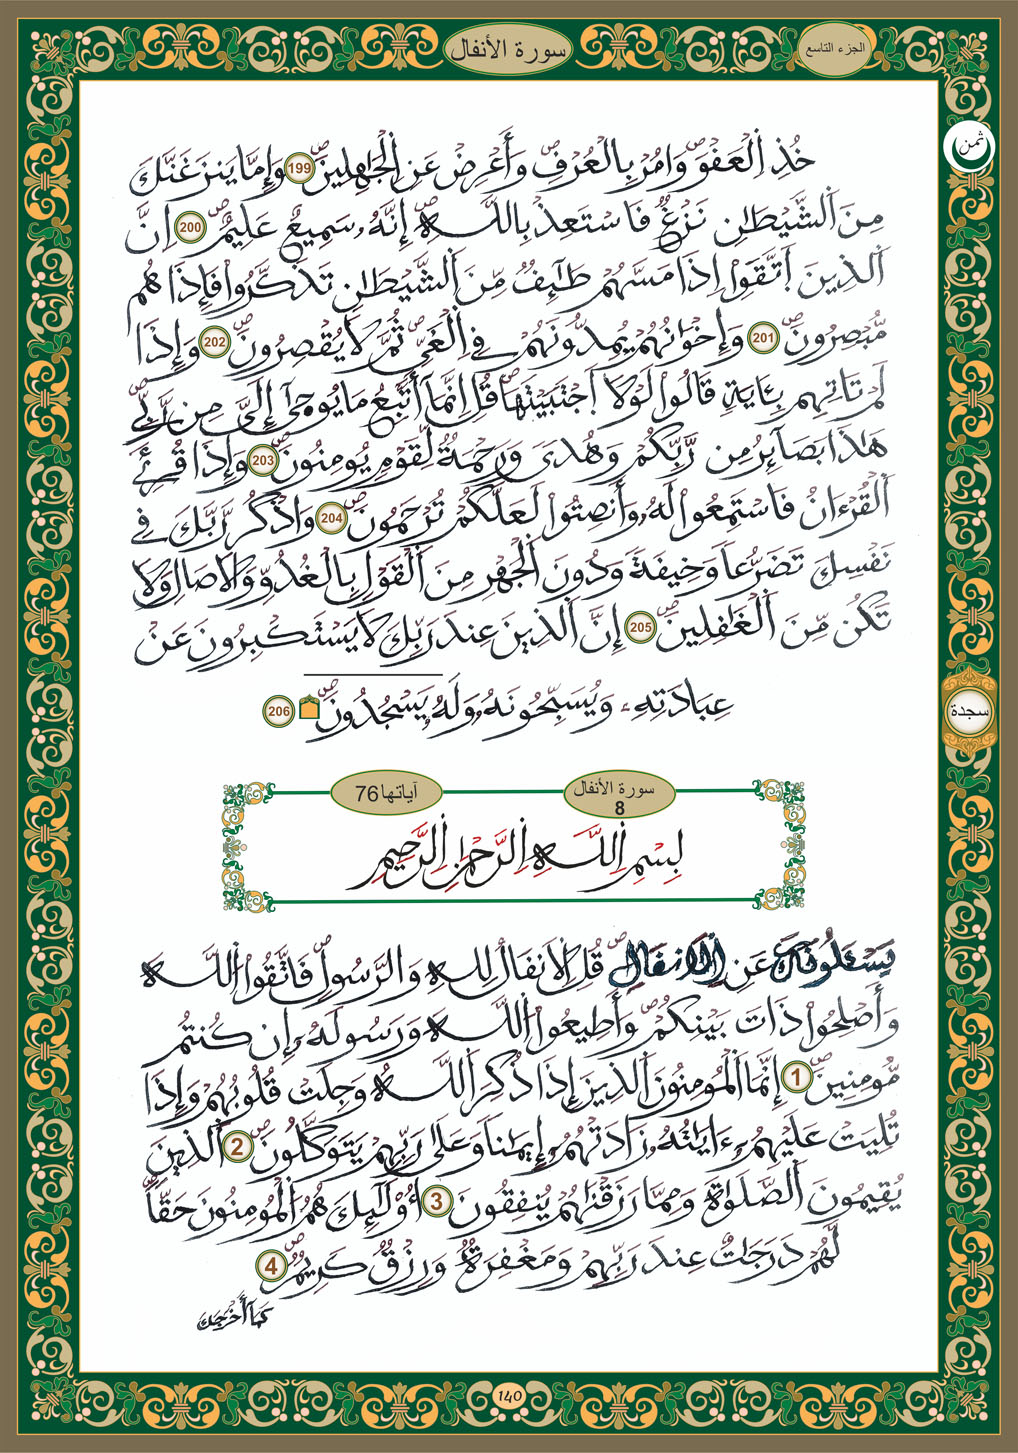 سورة الأنفال
الجزء التاسع
ثمن
خُذِ اِ۬لْعَفْوَ وَامُرْ بِالْعُرْفِ صـ وَأَعْرِضْ عَنِ اِ۬لْجَٰهِلِينَ صـ 199 وَإِمَّا يَنزَغَنَّكَ
مِنَ اَ۬لشَّيْطَٰنِ نَزْغٌ فَاسْتَعِذْ بِاللَّهِ صـ إِنَّهُۥ سَمِيعٌ عَلِيمٌ صـ 200 اِنَّ
اَ۬لذِينَ اَ۪تَّقَوِاْ اِذَا مَسَّهُمْ طَٰٓئِفٌ مِّنَ اَ۬لشَّيْطَٰنِ تَذَكَّرُواْ فَإِذَا هُم
مُّبْصِرُونَ صـ 201 وَإِخْوَٰنُهُمْ يُمِدُّونَهُمْ فِے اِ۬لْغَيِّ صـ ثُمَّ لَا يُقْصِرُونَ صـ 202 وَإِذَا
لَمْ تَاتِهِم بِـَٔايَةٍ قَالُواْ لَوْلَا اَ۪جْتَبَيْتَهَا صـ قُلِ اِنَّمَآ أَتَّبِعُ مَا يُوح۪يٰٓ إِلَيَّ مِن رَّبِّے صـ
هَٰذَا بَصَآئِرُ مِن رَّبِّكُمْ وَهُديٗ وَرَحْمَةٌ لِّقَوْمٍ يُومِنُونَ صـ 203 وَإِذَا قُرِئَ
اَ۬لْقُرْءَانُ فَاسْتَمِعُواْ لَهُۥ وَأَنصِتُواْ لَعَلَّكُمْ تُرْحَمُونَ صـ 204 وَاذْكُر رَّبَّكَ فِے
نَفْسِكَ تَضَرُّعاً وَخِيفَةً وَدُونَ اَ۬لْجَهْرِ مِنَ اَ۬لْقَوْلِ بِالْغُدُوِّ وَالَاصَالِ وَلَا
تَكُن مِّنَ اَ۬لْغَٰفِلِينَ صـ 205 إِنَّ اَ۬لذِينَ عِندَ رَبِّكَ لَا يَسْتَكْبِرُونَ عَنْ
عِبَادَتِهِۦ وَيُسَبِّحُونَهُۥ وَلَهُۥ يَسْجُدُونَ صـ ۩ 206
سجدة
سورة الأنفال 8
آياتها 76
بِسْمِ اِ۬للَّهِ اِ۬لرَّحْمَٰنِ اِ۬لرَّحِيمِ
يَسْـَٔلُونَكَ عَنِ اِ۬لَانفَالِ صـ قُلِ اِ۬لَانفَالُ لِلهِ وَالرَّسُولِ صـ فَاتَّقُواْ اُ۬للَّهَ
وَأَصْلِحُواْ ذَاتَ بَيْنِكُمْ صـ وَأَطِيعُواْ اُ۬للَّهَ وَرَسُولَهُۥٓ إِن كُنتُم
مُّومِنِينَ صـ 1 إِنَّمَا اَ۬لْمُومِنُونَ اَ۬لذِينَ إِذَا ذُكِرَ اَ۬للَّهُ وَجِلَتْ قُلُوبُهُمْ وَإِذَا
تُلِيَتْ عَلَيْهِمُۥٓ ءَايَٰتُهُۥ زَادَتْهُمُۥٓ إِيمَٰناً وَعَلَىٰ رَبِّهِمْ يَتَوَكَّلُونَ صـ 2 اَ۬لذِينَ
يُقِيمُونَ اَ۬لصَّلَوٰةَ وَمِمَّا رَزَقْنَٰهُمْ يُنفِقُونَ صـ 3 أُوْلَٰٓئِكَ هُمُ اُ۬لْمُومِنُونَ حَقّاٗ صـ
لَّهُمْ دَرَجَٰتٌ عِندَ رَبِّهِمْ وَمَغْفِرَةٌ وَرِزْقٌ كَرِيمٌ صـ 4
كَمَآ أَخْرَجَكَ
140